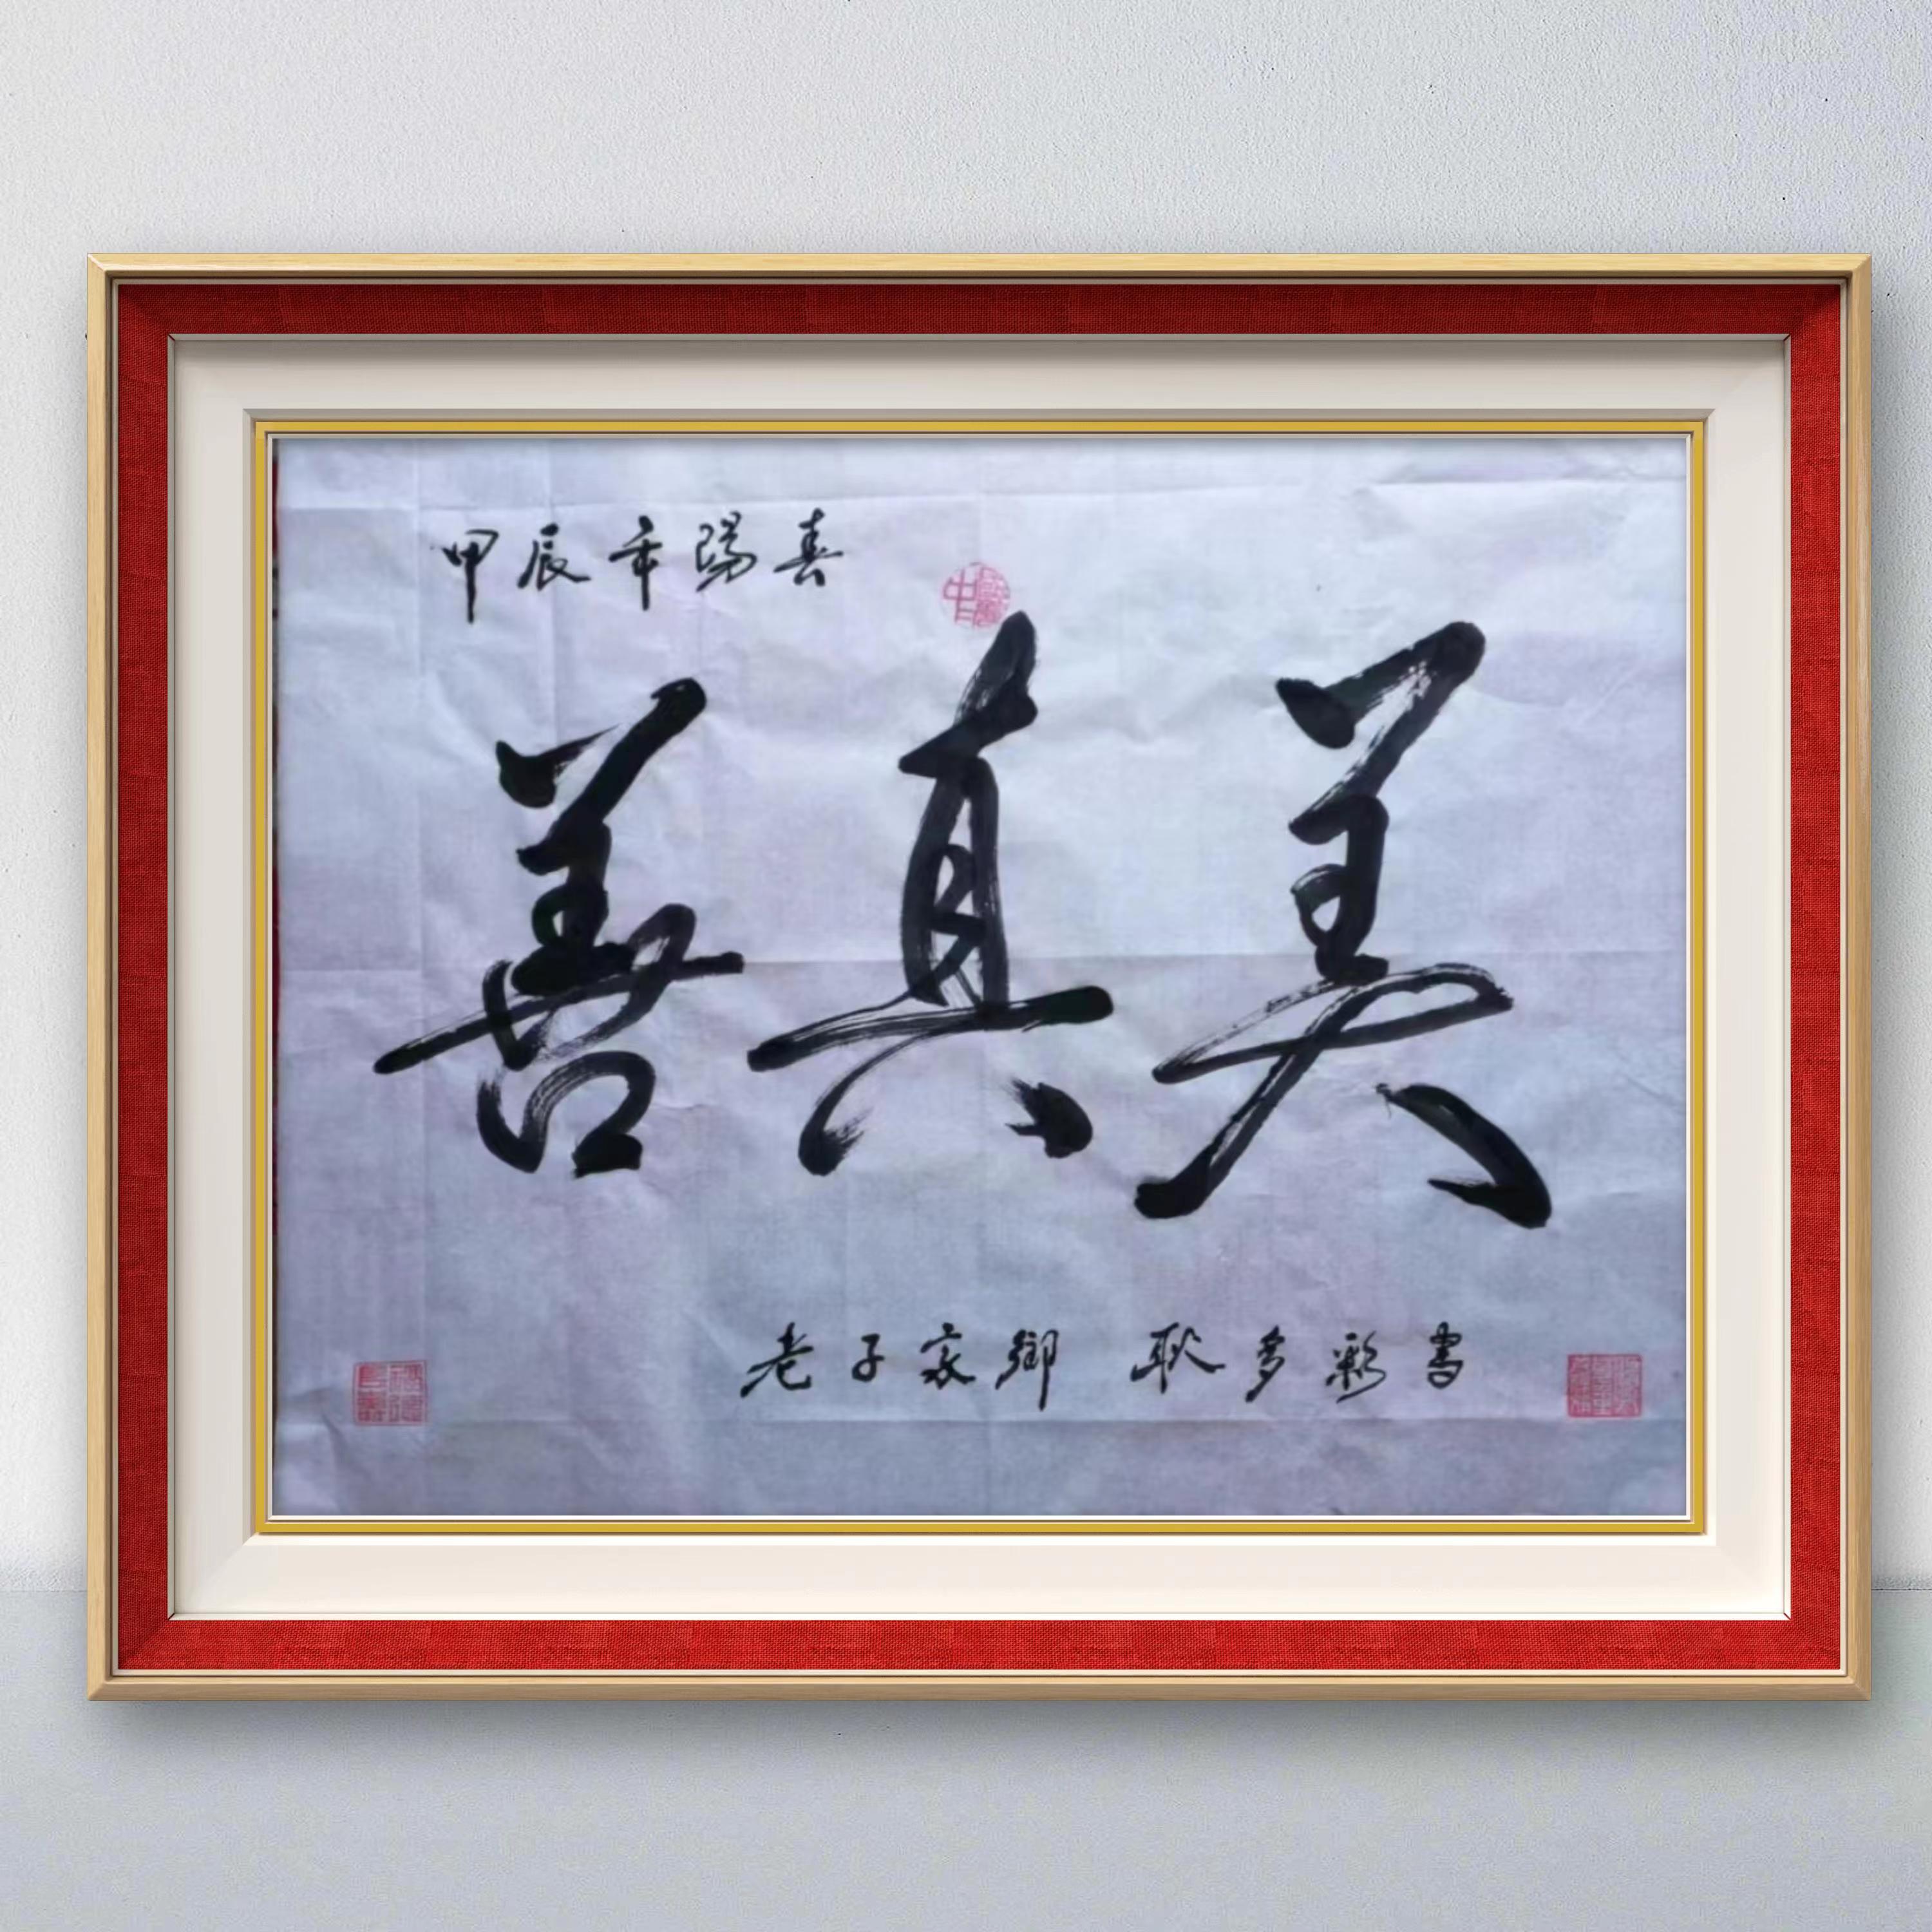 甲辰年陽春
善真美
老子家鄉 耿多彩書